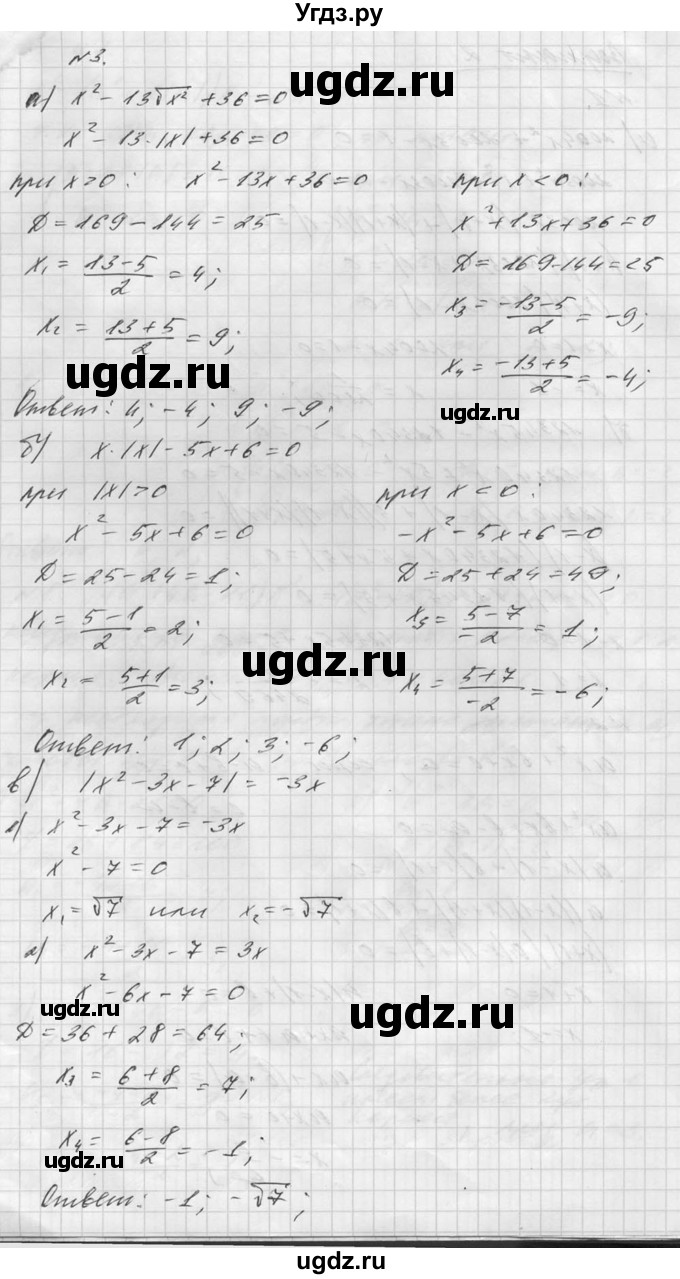 Угдз.ру
№3.
а) x² - 13√x² + 36 = 0
x² - 13·|x| + 36 = 0
при x > 0: x² - 13x + 36 = 0
D = 169 - 144 = 25
x₁ = (13-5)/2 = 4;
x₂ = (13+5)/2 = 9;
при x < 0:
x² + 13x + 36 = 0
D = 169-144 = 25
x₃ = (-13-5)/2 = -9;
x₄ = (-13+5)/2 = -4;
ugdz.ru
ugdz.ru
Ответ: 4; -4; 9; -9;
б) x·|x| - 5x + 6 = 0
при |x| > 0
x² - 5x + 6 = 0
D = 25 - 24 = 1;
x₁ = (5-1)/2 = 2;
x₂ = (5+1)/2 = 3;
при x < 0:
-x² - 5x + 6 = 0
D = 25 + 24 = 49;
x₃ = (5-7)/-2 = 1;
x₄ = (5+7)/-2 = -6;
ugdz.ru
Ответ: 1; 2; 3; -6;
в) |x² - 3x - 7| = -3x
1) x² - 3x - 7 = -3x
x² - 7 = 0
x₁ = √7 или x₂ = -√7
2) x² - 3x - 7 = 3x
x² - 6x - 7 = 0
ugdz.ru
ugdz.ru
D = 36 + 28 = 64;
x₃ = (6+8)/2 = 7;
x₄ = (6-8)/2 = -1;
ugdz.ru
Ответ: -1; -√7;
ugdz.ru